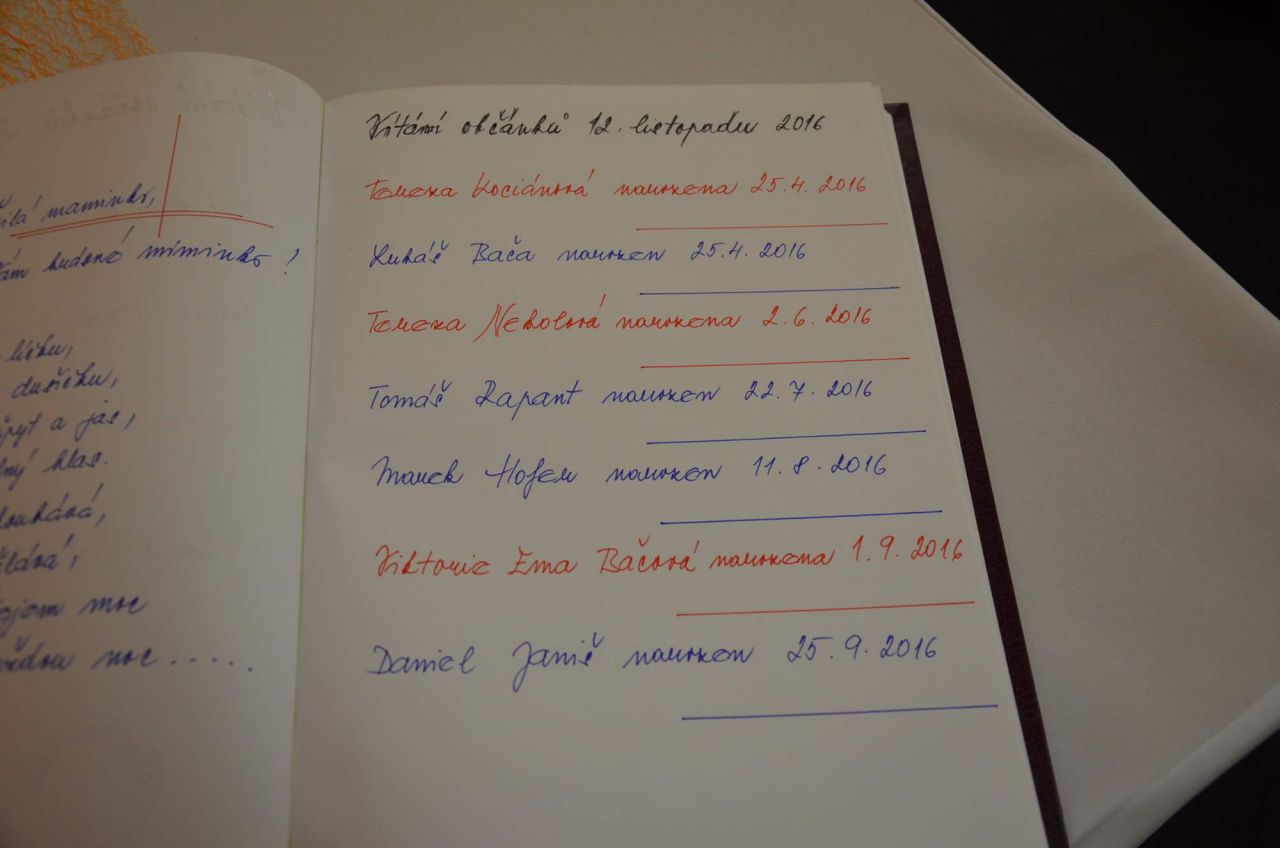 maminko,
budené miminko!
líčku,
dušičku,
a jas,
hlas.
moc
noc.....
Vítání občánků 12. listopadu 2016
Tereza Kociánová narozena 25.4. 2016
Lukáš Bača narozen 25.4. 2016
Tereza Nekolová narozena 2.6. 2016
Tomáš Rapant narozen 22.7. 2016
Marek Hofer narozen 11.8. 2016
Viktorie Ema Báčová narozena 1.9. 2016
Daniel Janiš narozen 25.9. 2016